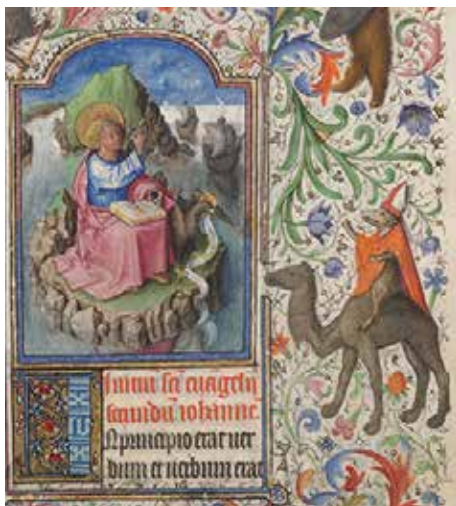 Initiū sc̄i euāgelij
secundū iohannē
N principio erat uer
bum et uerbum erat